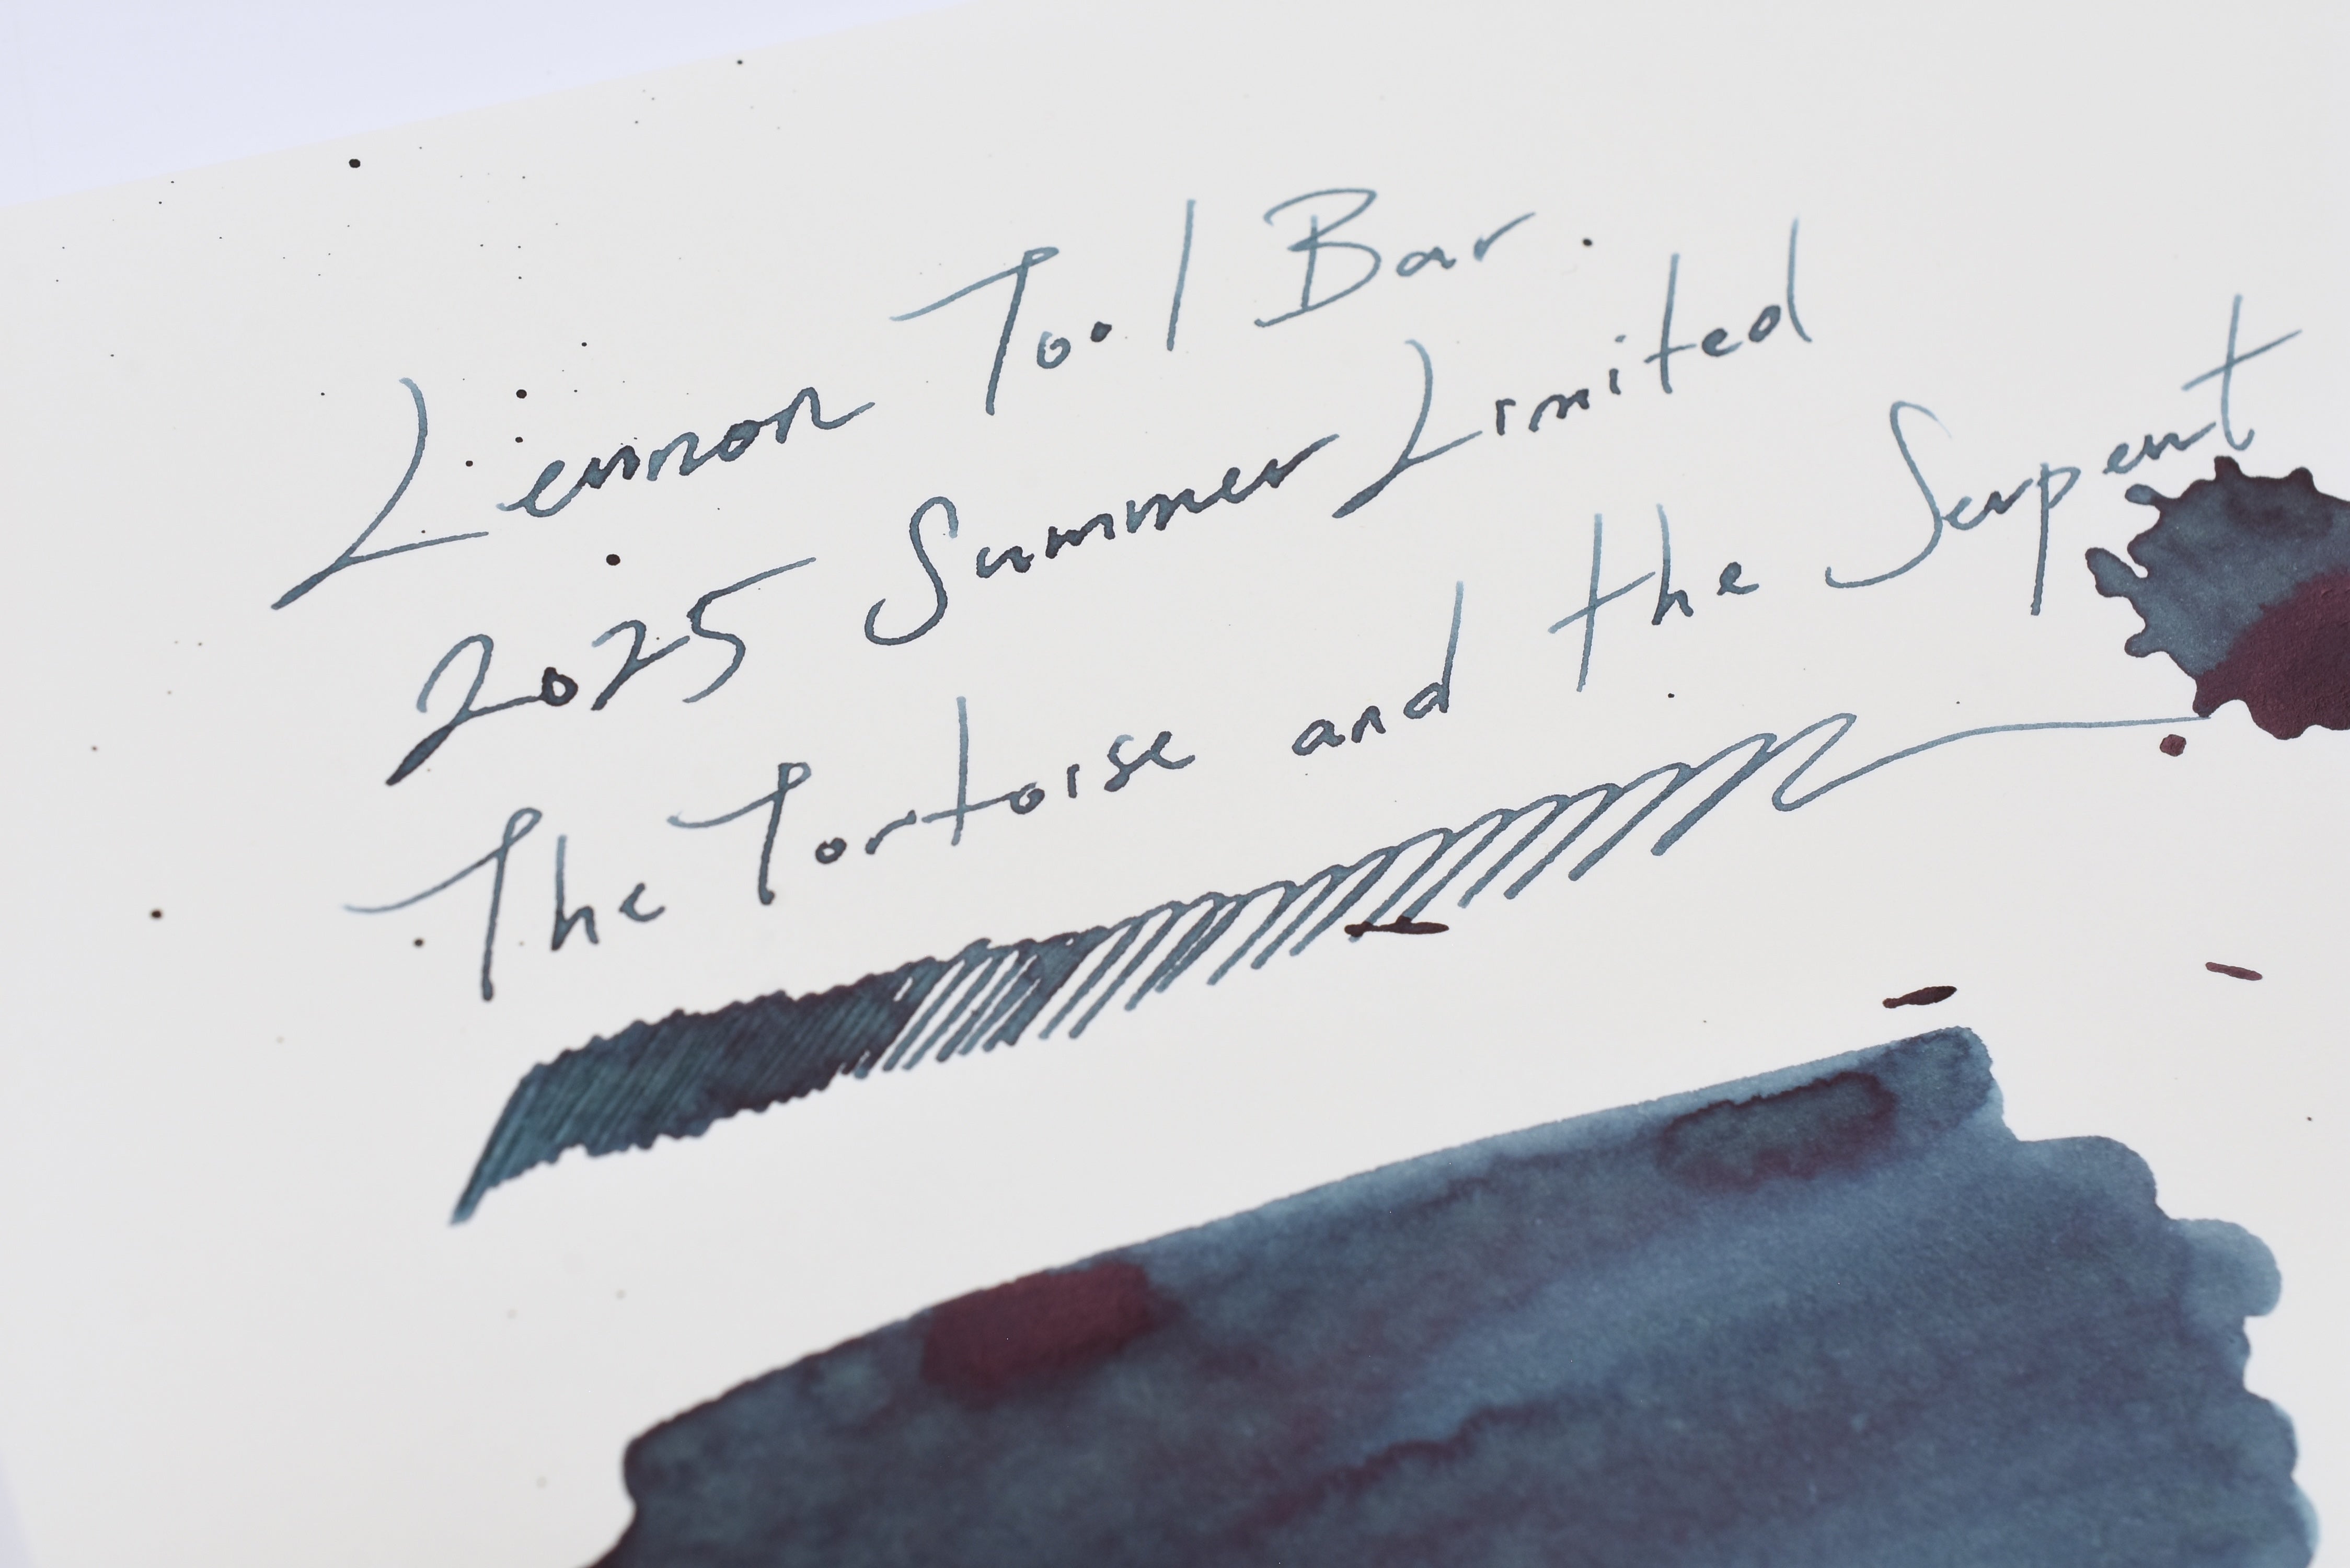 Lennon Tool Bar
2025 Summer Limited
The Tortoise and the Serpent